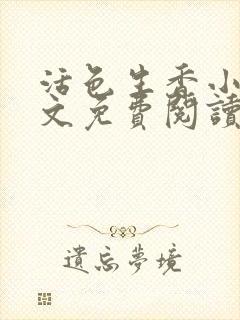 活色生香小
文免費閱讀
遺忘夢境